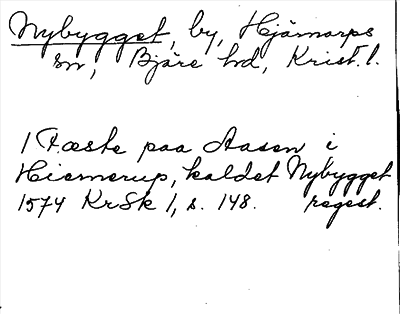 Nybygget, by, Hjärnarps
sn, Bjäre hd, Krist. l.
1 Fæste paa Aasen i
Hiernerup, kaldet Nybygget
1574 KrSk 1, s. 148. regest.